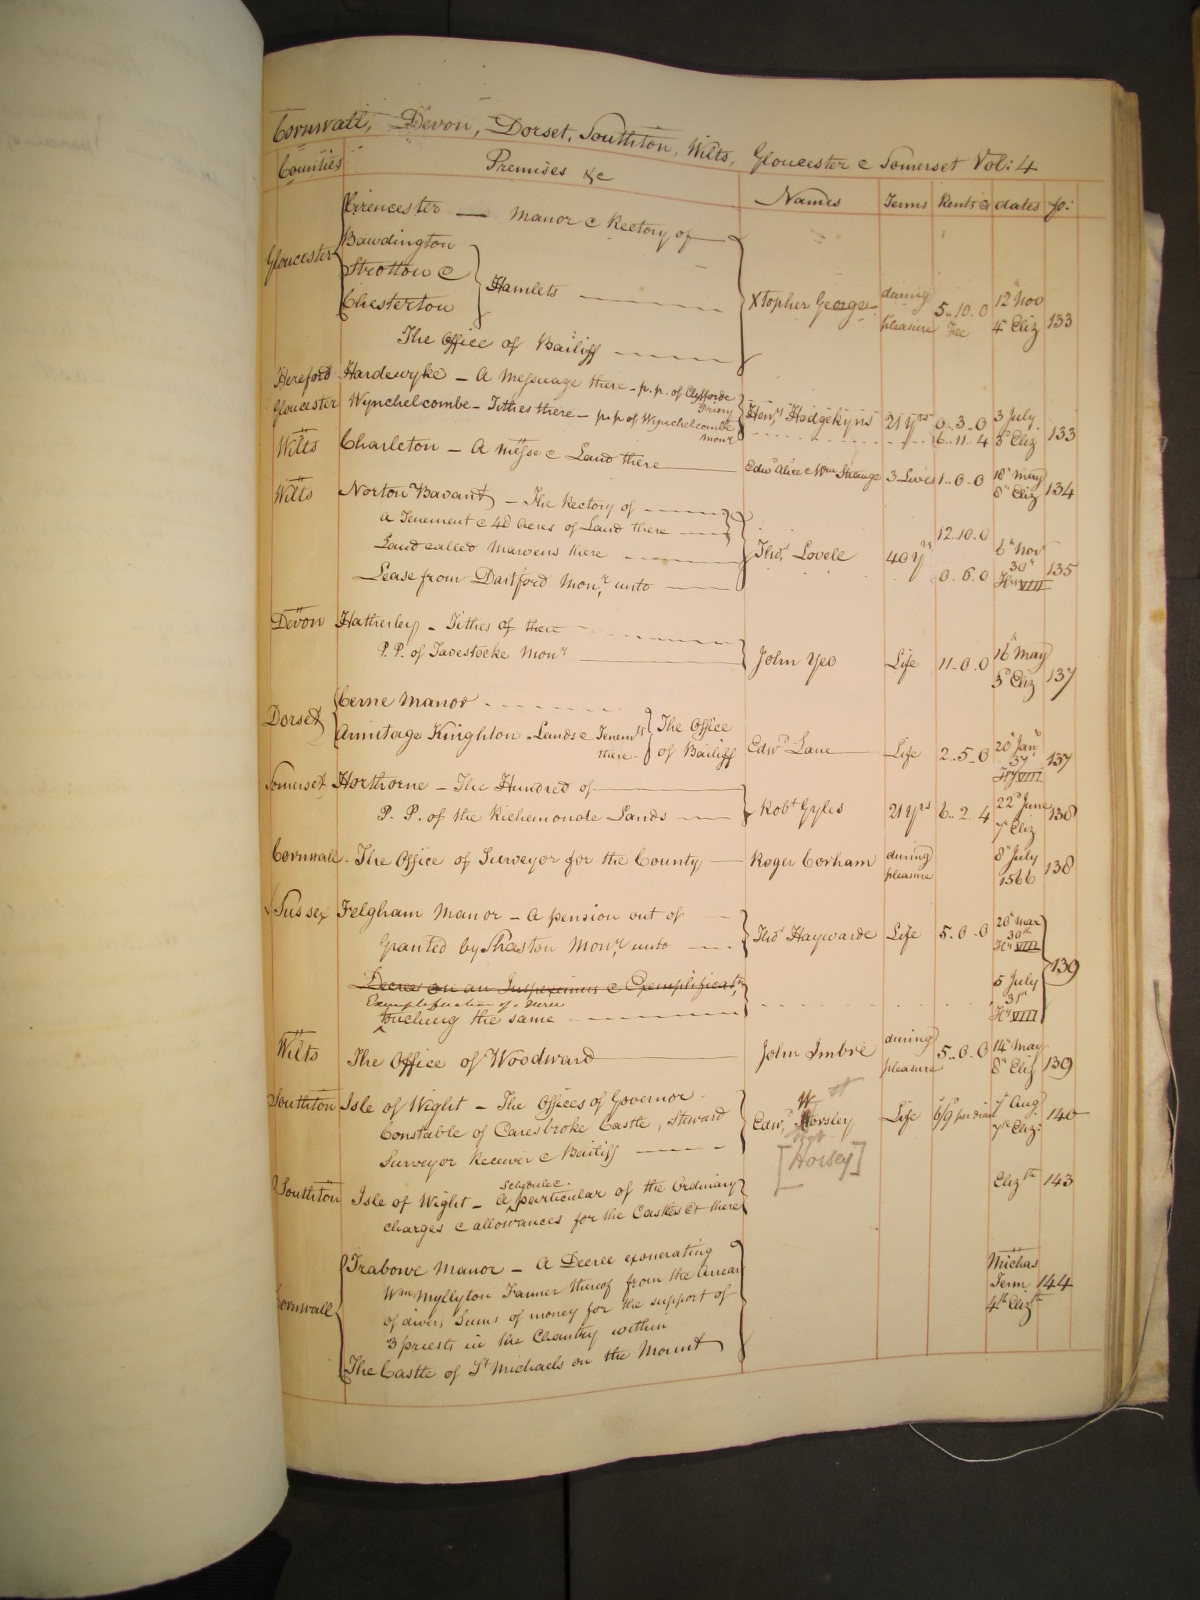 Cornwall, Devon, Dorset, Southton, Wilts, Gloucester & Somerset Vol: 4
Counties Premises &c Names Terms Rents &c dates fo:
Cirencester — Manor & Rectory of
Gloucester Bawdington
Stratton &
Chesterton Hamlets Xtopher George during pleasure 5..10.0 Fee 12th Nov 4th Eliz 133
The Office of Bailiff
Hereford Hardewyke – A Messuage there – p.p. of Clyfforde Priory
Gloucester Wynchelcombe – Tithes there – p.p of Wynchelcombe monr Heny Hodgekyns 21 yrs 0..3..0 6..11..4 3 July 3d Eliz 133
Wilts Charleton – A Messe & Land there Edwd Alice & Wm Strange 3 Lives 1..0..0 18th May 8th Eliz 134
Wilts Norton Bavant – The Rectory of
A Tenement & 42 Acres of Land there 12.10.0
Land called Marvens there Thos Lovele 40 yrs 6th Nov 30th Hy VIII 135
Lease from Dartford Monr, unto 0.6.0
Devon Hatherley – Tithes of there
P.P. of Tavestocke Monr John Yeo Life 11..0..0 16th May 3d Eliz 137
Cerne Manor
Dorset Armitage Knighton – Lands & Tenemts there – The Office of Bailiff Edwd Lane Life 2..5..0 20th Jany 37th Hy VIII 137
Somerset Horthorne – The Hundred of
P. P. of the Richemonde Lands Robt Gyles 21 yrs 6..2..4 22d June 7th Eliz 138
Cornwall – The Office of Surveyor for the County Roger Corham during pleasure 8th July 1566 138
Sussex Felgham Manor – A pension out of
Granted by Shaston Monr, unto Thos Haywarde Life 5..0..0 20th Mar 30th Hy VIII
Decree on an Inspeximus & Exemplificatn
Exemplification of a Decree
touching the same 5 July 31st Hy VIII 139
Wilts The Office of Woodward John Imbre during pleasure 5..0..0 14th May 8th Eliz 139
Southton Isle of Wight – The Offices of Governor
Constable of Caresbroke Castle, Steward Edwd Horsley Life 6/9 per diem 7th Aug 7th Eliz: 140
Surveyor Receiver & Bailiff [Horsey]
Schedule
Southton Isle of Wight – A particular of the Ordinary Elizth 143
charges & allowances for the Castles &c there
Trabowe Manor – A Decree exonerating
Wm Myllyton Farmer thereof from the Arrears Michas Term 4th Elizth 144
Cornwall of divers Sums of money for the support of
3 priests in the Chantry within
The Castle of St Michaels on the Mount